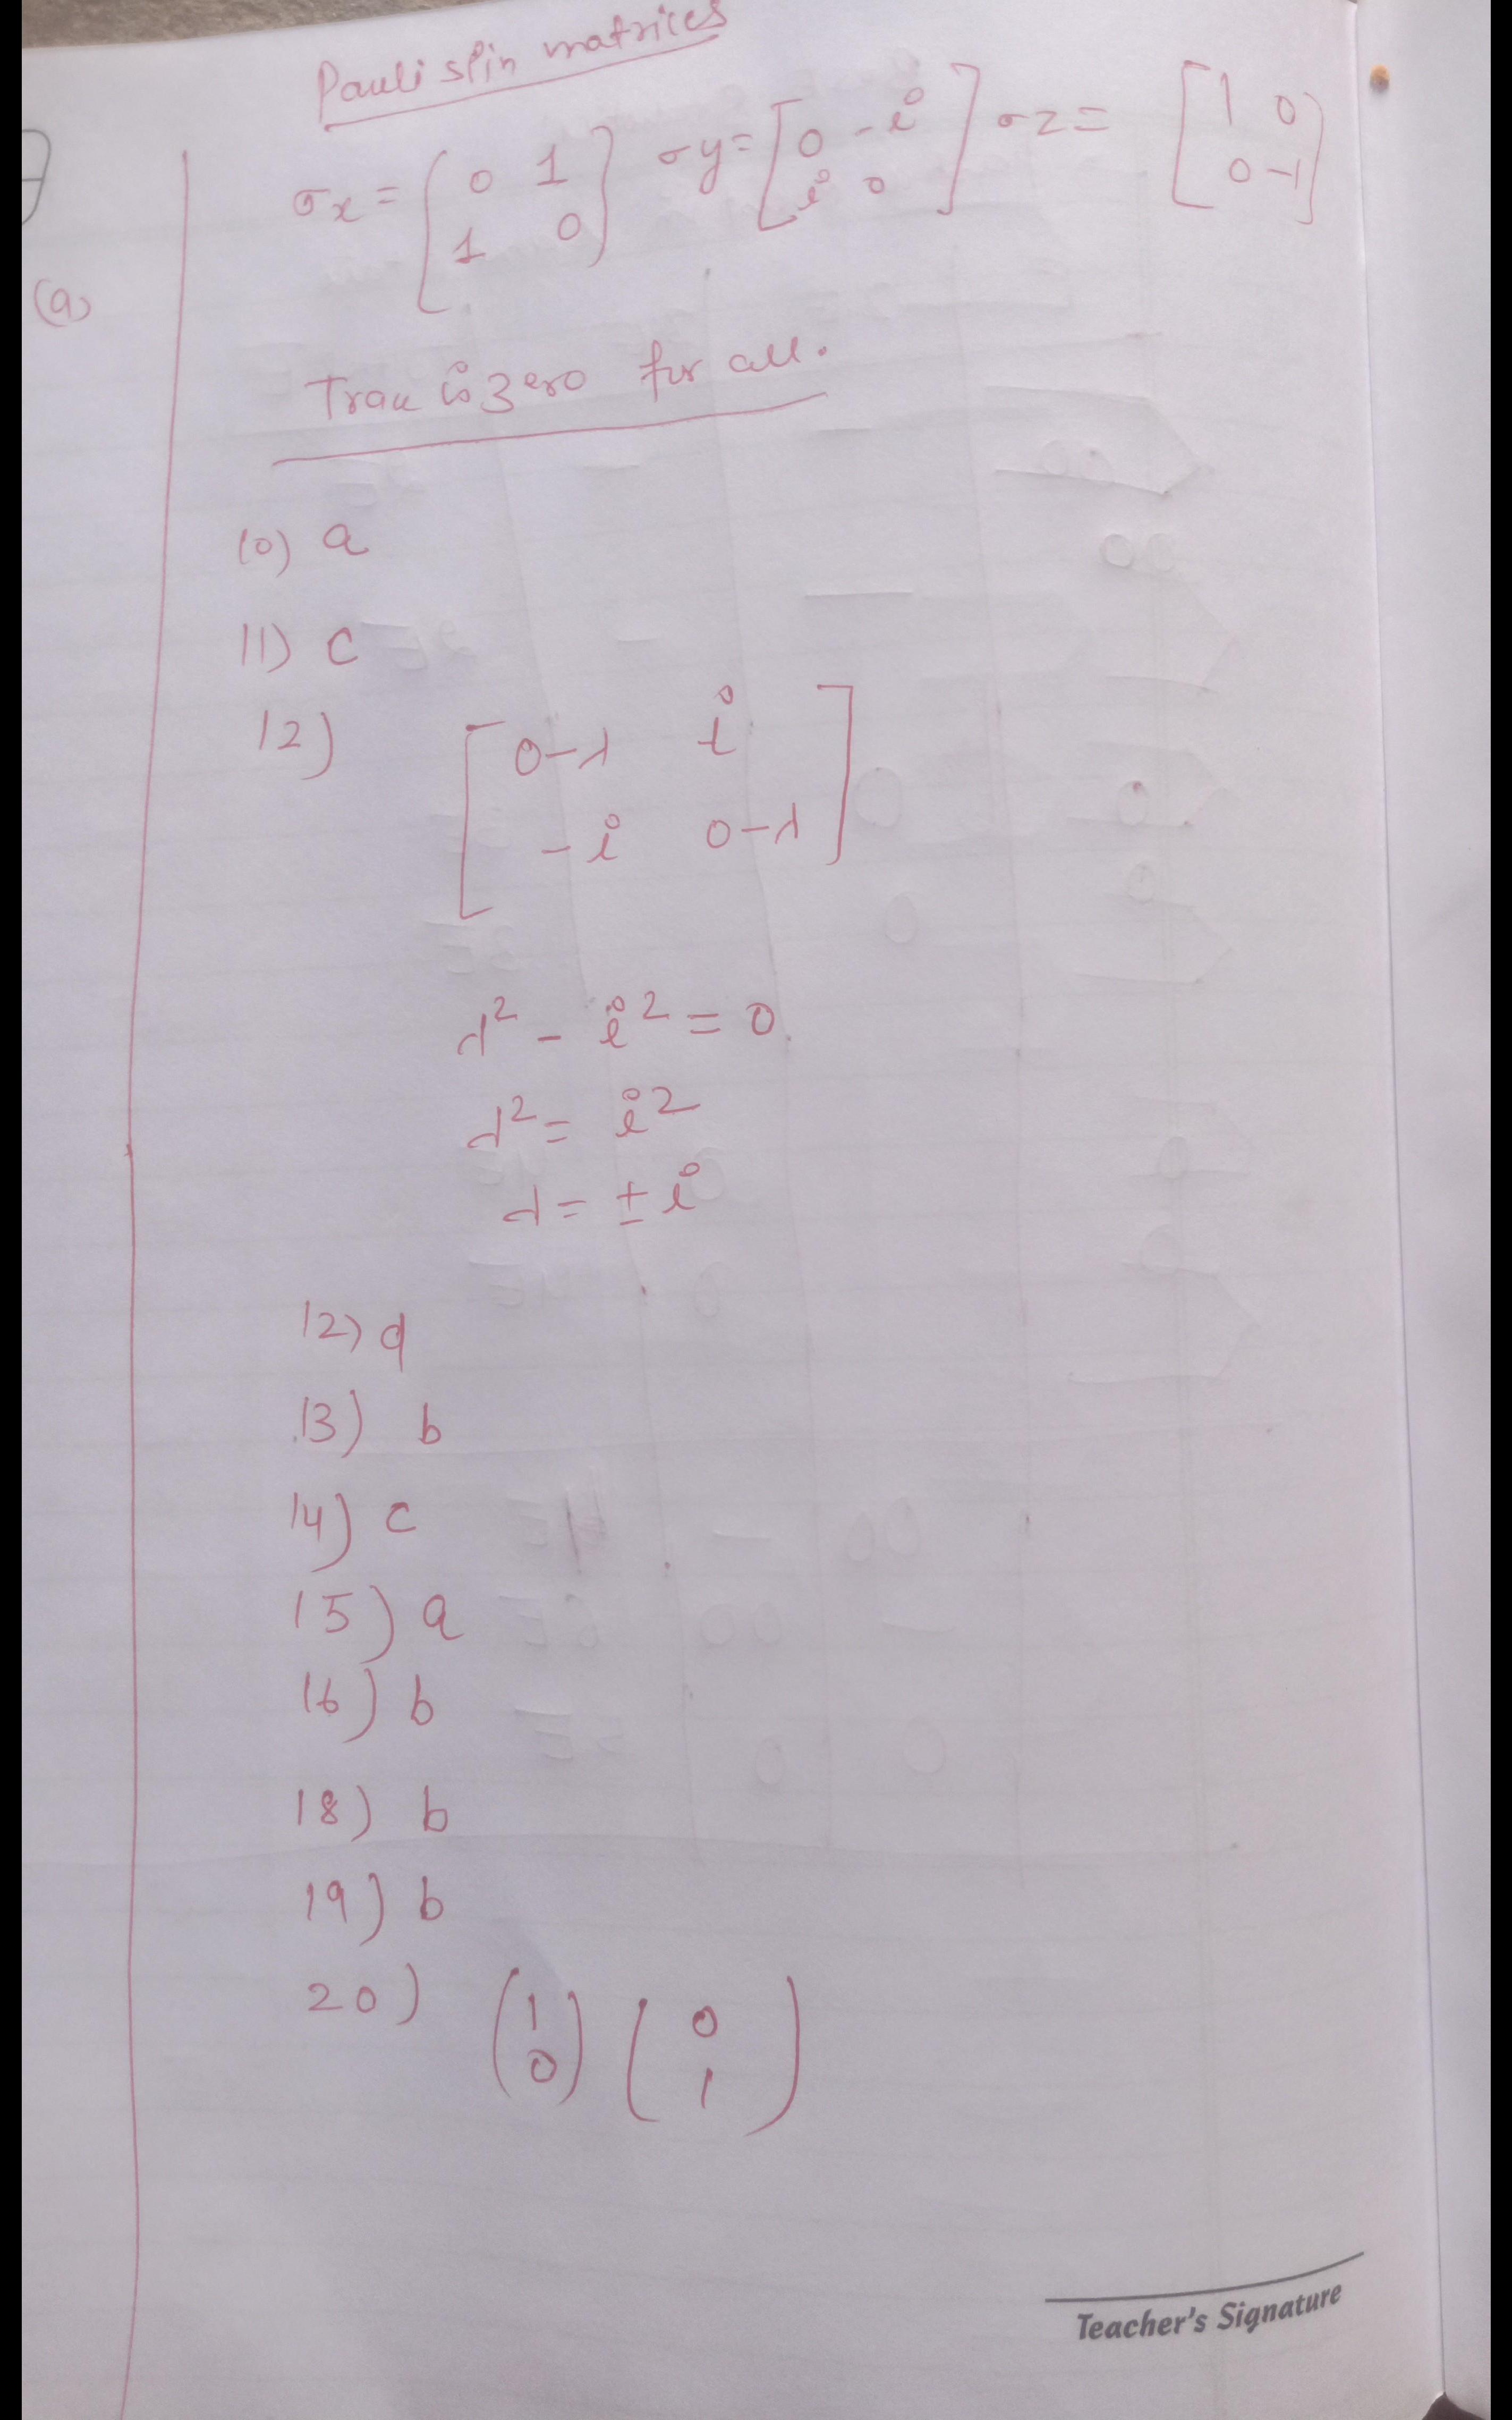 Pauli spin matrices
σx = [0 1
1 0] σy = [0 -i
i 0] σz = [1 0
0 -1]
(a)
Trau is zero for all.
10) a
11) c
12) [0-λ i
-i 0-λ]
λ² - i² = 0
λ² = i²
λ = ± i
12) d
13) b
14) c
15) a
16) b
18) b
19) b
20) (1
0) (0
1)
Teacher's Signature